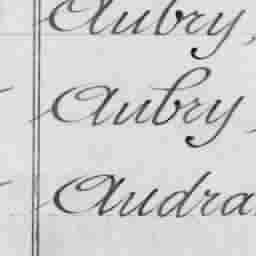 Aubry,
Aubry
Audra